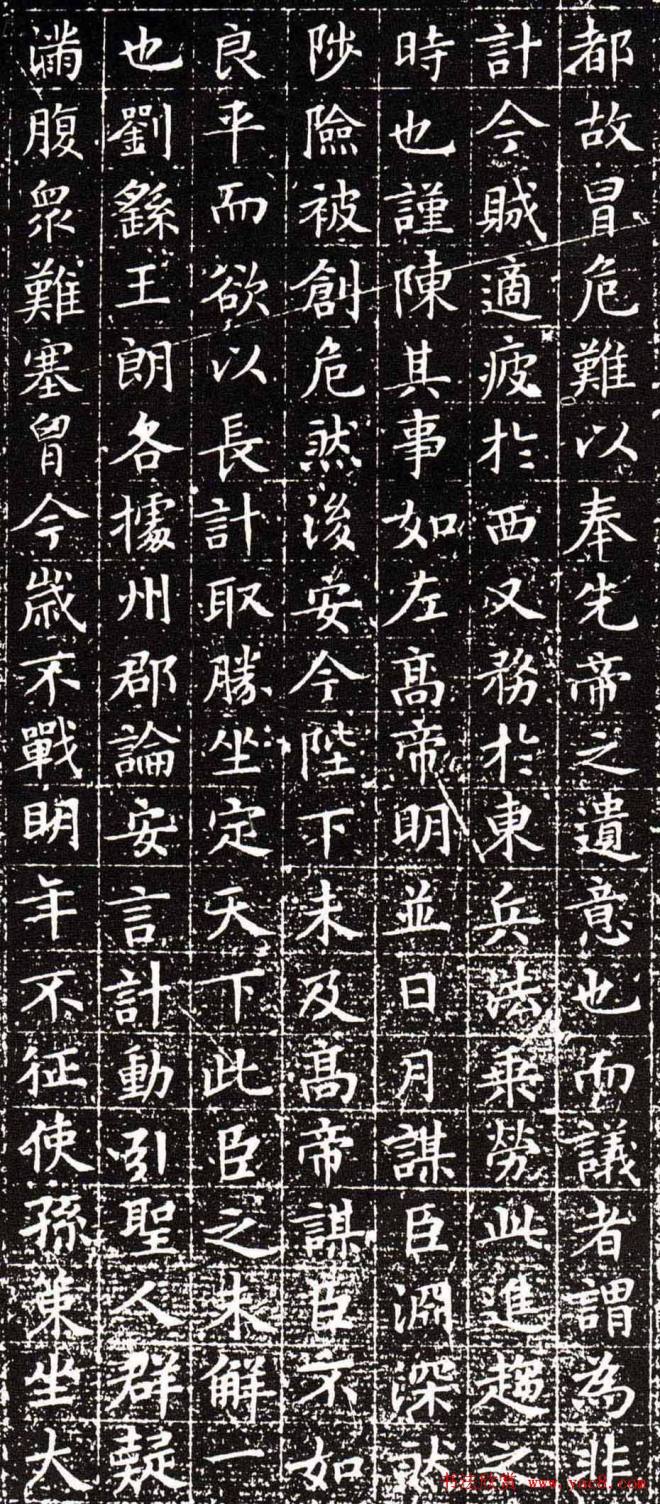 都故冒危難以奉先帝之遺意也而議者謂為非
計今賊適疲於西又務於東兵法乗勞此進趨之
時也謹陳其事如左高帝明並日月謀臣淵深然
陟險被創危然後安今陛下未及高帝謀臣不如
良平而欲以長計取勝坐定天下此臣之未解一
也劉繇王朗各據州郡論安言計動引聖人群疑
滿腹眾難塞胷今歲不戰明年不征使孫策坐大
书法欣赏 www.yac8.com